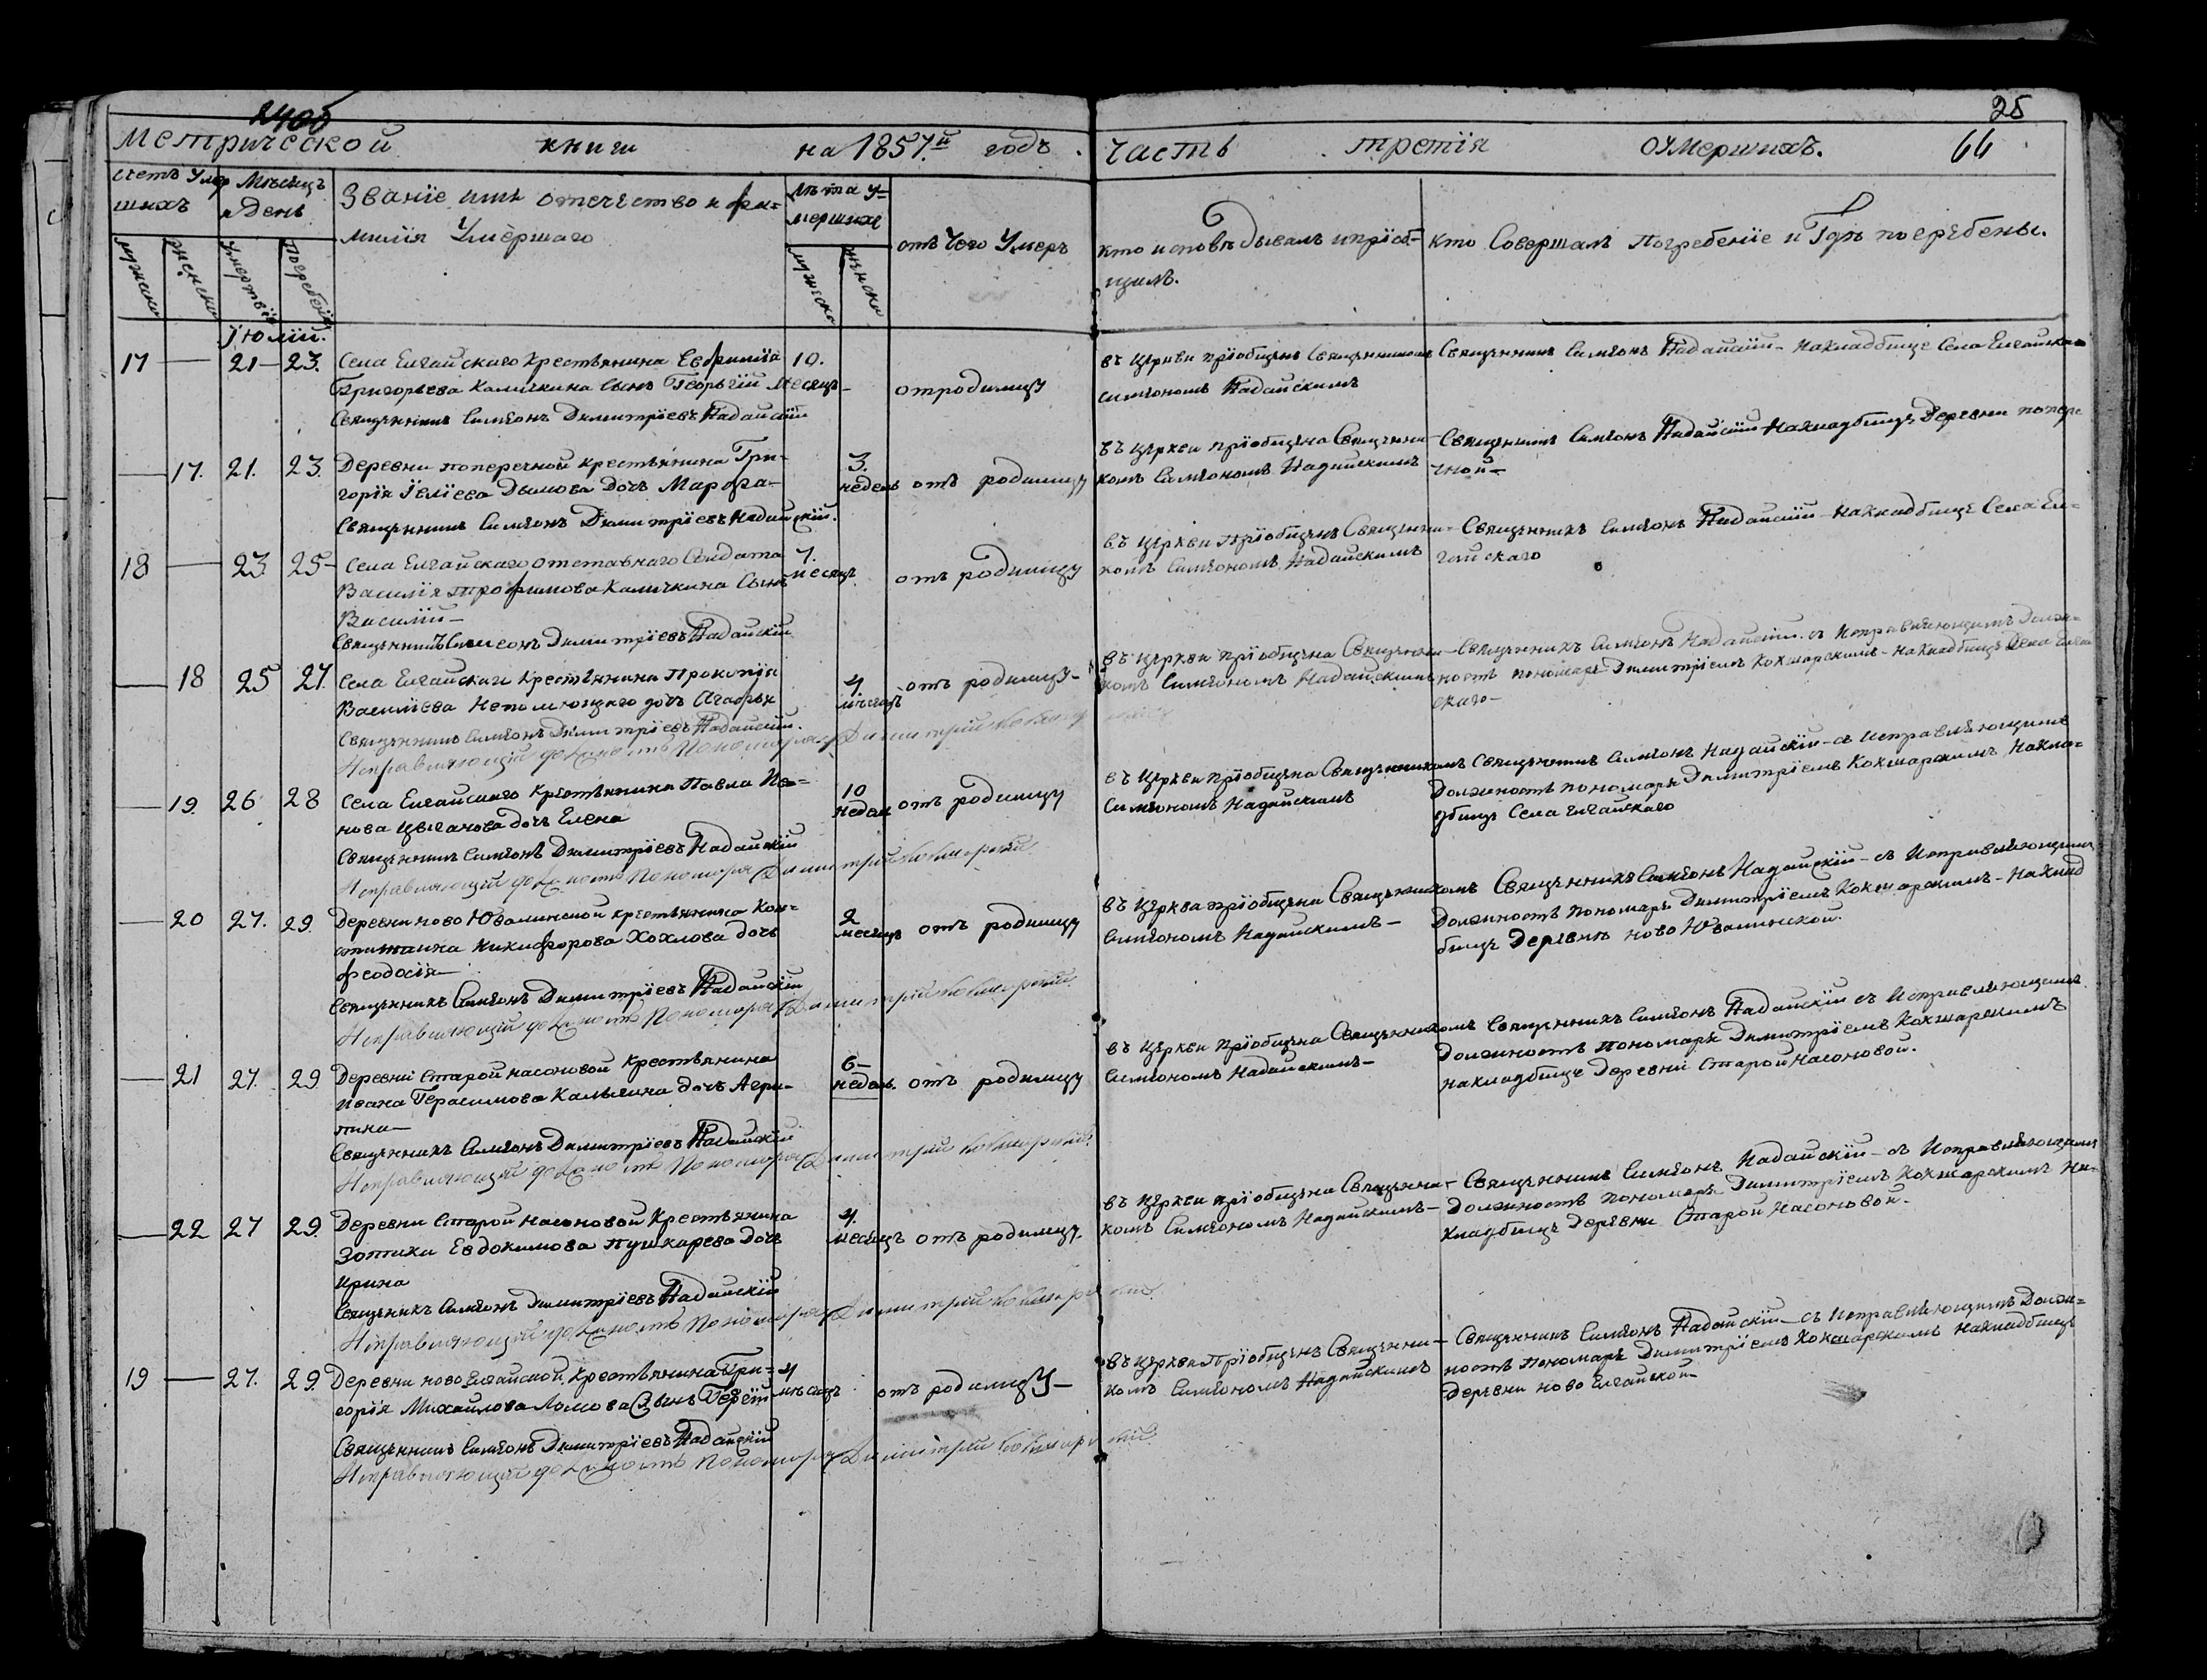 25
Метрической книги на 1857й годъ.
Часть третія оумершихъ. 66
счетъ Умер
шихъ
Мѣсяцъ
и День
Званіе имя отечество и фа=
милія Умершаго
Лѣта у=
мершихъ
отъ Чего Умеръ
кто исповѣдывалъ и пріоб=
щилъ.
кто Совершалъ Погребеніе и Гдѣ погребены.
мужеска
женска
Умертвія
Погребенія
мужеска
женска
Іюлій.
17 — 21 — 23. Села Елгайскаго Крестьянина Евфимія 10.
Григорьева Каличкина Сынъ Георьгій Месяцъ — отродимцу
Священникъ Симеонъ Димитріевъ Надайскій
въ Церкви пріобщенъ Священникомъ
Симеономъ Надайскимъ
Священникъ Симеонъ Надайскій — накладбище Села Елгайскаго
— 17. 21. 23. Деревни поперечной крестьянина Гри- 3.
горія Івліева Дымова дочь Марфа — недель отъ родимцу
Священникъ Симеонъ Димитріевъ Надайскій.
въ Церкви пріобщена Священни-
комъ Симеономъ Надайскимъ
Священникъ Симеонъ Надайскій накладбище Деревни попере
чной —
18 — 23. 25 — Села Елгайскаго отставнаго Солдата 7.
Василія Трофимова Каличкина Сынъ месяцъ отъ родимцу
Василій —
Священникъ Симеонъ Димитріевъ Надайскій
въ Церкви Пріобщенъ Священни-
комъ Симеономъ Надайскимъ
Священникъ Симеонъ Надайскій накладбище Села Ел=
гайскаго
— 18 25 27. Села Елгайскаго Крестьянина Прокопія 4.
Василіева Непомнющаго дочь Агафья месяцъ отъ родимцу —
Священникъ Симеонъ Димитріевъ Надайскій.
Исправляющій должность Пономаря Димитрій Кокшарскій
въ Церкви пріобщена Священни-
комъ Симеономъ Надайскимъ
Священникъ Симеонъ Надайскій съ Исправляющимъ Долж=
ность пономаря Димитріемъ Кокшарскимъ — накладбище Села Елгай
скаго —
— 19. 26 28 Села Елгайскаго Крестьянина Павла Ива= 10
нова Цыганова дочь Елена недель отъ родимцу
Священникъ Симеонъ Димитріевъ Надайскій
Исправляющій должность Пономаря Димитрій Кокшарскій
въ Церкви пріобщена Священникомъ
Симеономъ Надайскимъ
Священникъ Симеонъ Надайскій — съ Исправляющимъ
Должность пономаря Димитріемъ Кокшарскимъ Накла=
дбище Села Елгайскаго
— 20 27. 29. Деревни ново Ювалинской крестьянина Кон= 2
стнтина Никифорова Хохлова дочь месяцъ отъ родимцу
Феодосія —
Священникъ Симеонъ Димитріевъ Надайскій
Исправляющій должность Пономаря Димитрій Кокшарскій
въ Церкви пріобщена Священникомъ
Симеономъ Надайскимъ —
Священникъ Симеонъ Надайскій — съ Исправляющимъ
Должность пономаря Димитріемъ Кокшарскимъ — Наклад
бище Деревнѣ ново Ювалинской.
— 21 27. 29 Деревні Старой насоновой крестьянина 6 —
Ивана Герасимова Калыгина дочь Агри- недель. отъ родимцу
пина —
Священникъ Симеонъ Димитріевъ Надайскій
Исправляющій должность Пономаря Димитрій Кокшарскій
въ Церкви пріобщена Священникомъ
Симеономъ Надайскимъ —
Священникъ Симеонъ Надайскій съ Исправляющимъ
Должность пономаря Димитріемъ Кокшарскимъ
накладбище Деревні Старой Насоновой.
— 22 27 29. Деревни Старой насоновой Крестьянина 4.
Зотики Евдокимова Пушкарева дочь месяцъ отъ родимцу.
Ирина
Священникъ Симеонъ Димитріевъ Надайскій
Исправляющій должность Пономаря Димитрій Кокшарскій
въ Церкви пріобщена Священни-
комъ Симеономъ Надайскимъ —
Священникъ Симеонъ Надайскій — съ Исправляющимъ
Должность пономаря Димитріемъ Кокшарскимъ на=
кладбище Деревни Старой Насоновой.
19 — 27. 29. Деревни ново Елгайской крестьянина Гри= 4
горія Михайлова Ломова Сынъ мѣсяцъ отъ родимцу —
Священникъ Симеонъ Димитріевъ Надайскій
Исправляющій должность Пономаря Димитрій Кокшарскій
въ Церкви Пріобщенъ Священни-
комъ Симеономъ Надайскимъ
Священникъ Симеонъ Надайскій — съ Исправляющимъ Долж=
ность пономаря Димитріемъ Кокшарскимъ накладбище
Деревни ново Елгайской —